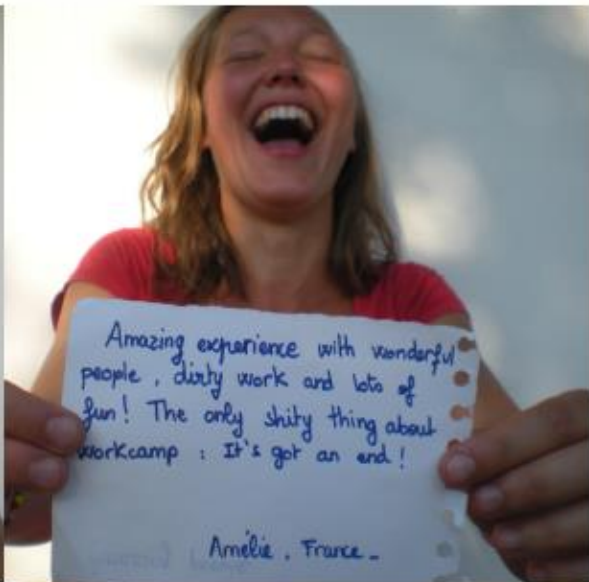 Amazing experience with wonderful
people , dirty work and lots of
fun! The only shity thing about
workcamp : It's got an end !
Amélie , France -